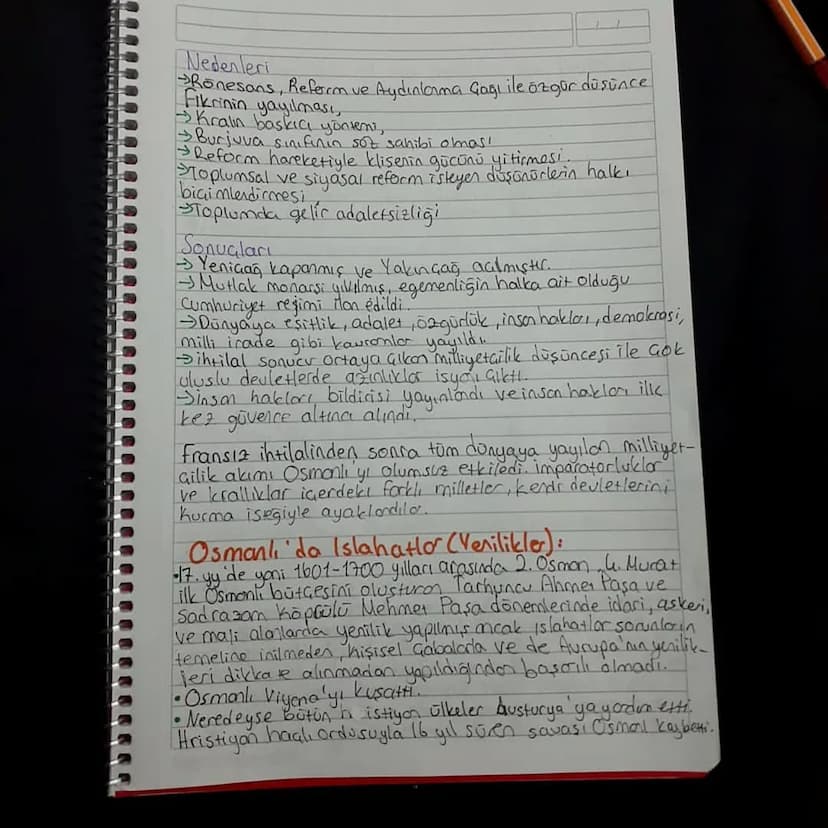 Nedenleri
→Rönesans, Reform ve Aydınlanma Çağı ile özgür düşünce
fikrinin yayılması,
→Kralın baskıcı yönemi,
→Burjuva sınıfının söz sahibi olması
→Reform hareketiyle klisenin gücünü yitirmesi.
→Toplumsal ve siyasal reform isteyen düşünürlerin halkı
biçimlendirmesi
→Toplumda gelir adaletsizliği
Sonuçları
→Yeniçağ kapanmış ve Yakınçağ açılmıştır.
→Mutlak monarşi yıkılmış, egemenliğin halka ait olduğu
Cumhuriyet rejimi ilan edildi.
→Dünyaya eşitlik, adalet, özgürlük, insan hakları, demokrasi,
milli irade gibi kavramlar yayıldı.
→ihtilal sonucu ortaya çıkan milliyetçilik düşüncesi ile çok
uluslu devletlerde azınlıklar isyanı çıktı.
→insan hakları bildirisi yayınlandı ve insan hakları ilk
kez güvence altına alındı.
Fransız ihtilalinden sonra tüm dünyaya yayılan milliyet-
çilik akımı Osmanlı'yı olumsuz etkiledi. imparatorluklar
ve krallıklar içerdeki farklı milletler, kendi devletlerini
kurma isteğiyle ayaklandılar.
Osmanlı'da Islahatlar (Yenilikler):
•17. yy'de yani 1601-1700 yılları arasında 2. Osman, 4. Murat
ilk Osmanlı bütçesini oluşturan Tarhuncu Ahmet Paşa ve
Sadrazam Köprülü Mehmet Paşa dönemlerinde idari, askeri,
ve mali alanlarda yenilik yapılmış ancak ıslahatlar sorunların
temeline inilmeden, kişisel çabalarla ve de Avrupa'nın yenilik-
leri dikkate alınmadan yapıldığından başarılı olmadı.
• Osmanlı Viyana'yı kuşattı.
• Neredeyse bütün hristiyan ülkeler Avusturya'ya yardım etti.
Hristiyan haçlı ordusuyla 16 yıl süren savaşı Osmanlı kaybetti.